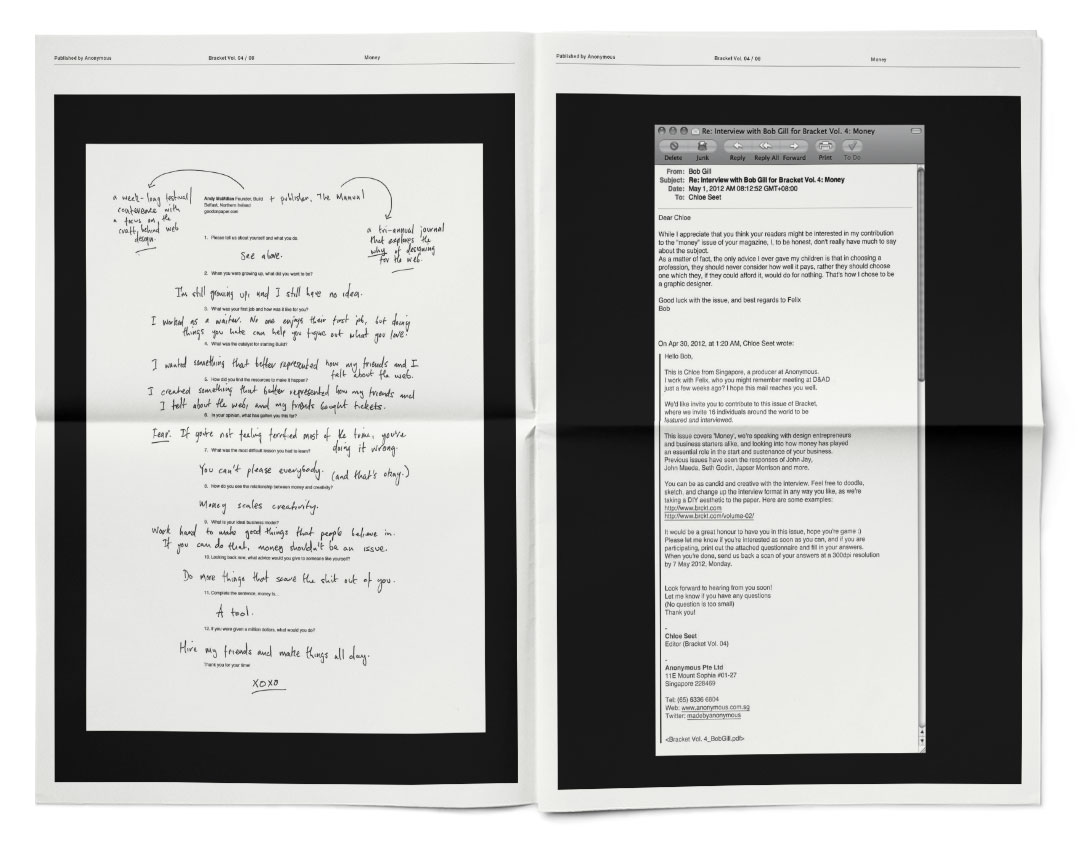 Published by Anonymous
Bracket Vol. 04 / 09
Money
a week-long festival/
conference with
a focus on the
craft behind web
design.
Andy McMillan Founder, Build + publisher, The Manual
Belfast, Northern Ireland
goodonpaper.com
a tri-annual journal
that explores the
why of designing
for the web.
1. Please tell us about yourself and what you do.
See above.
2. When you were growing up, what did you want to be?
I'm still growing up, and I still have no idea.
3. What was your first job and how was it like for you?
I worked as a waiter. No one enjoys their first job, but doing
things you hate can help you figure out what you love.
4. What was the catalyst for starting Build?
I wanted something that better represented how my friends and I
felt about the web.
5. How did you find the resources to make it happen?
I created something that better represented how my friends and
I felt about the web, and my friends bought tickets.
6. In your opinion, what has gotten you this far?
Fear. If you're not feeling terrified most of the time, you're
doing it wrong.
7. What was the most difficult lesson you had to learn?
You can't please everybody. (and that's okay.)
8. How do you see the relationship between money and creativity?
Money scales creativity.
9. What is your ideal business model?
Work hard to make good things that people believe in.
If you can do that, money shouldn't be an issue.
10. Looking back now, what advice would you give to someone like yourself?
Do more things that scare the shit out of you.
11. Complete the sentence, money is...
A tool.
12. If you were given a million dollars, what would you do?
Hire my friends and make things all day.
Thank you for your time!
XOXO
Published by Anonymous
Bracket Vol. 04 / 09
Money
Re: Interview with Bob Gill for Bracket Vol. 4: Money
Delete Junk Reply Reply All Forward Print To Do
From: Bob Gill
Subject: Re: Interview with Bob Gill for Bracket Vol. 4: Money
Date: May 1, 2012 AM 08:12:52 GMT+08:00
To: Chloe Seet
Dear Chloe
While I appreciate that you think your readers might be interested in my contribution
to the "money" issue of your magazine, I, to be honest, don't really have much to say
about the subject.
As a matter of fact, the only advice I ever gave my children is that in choosing a
profession, they should never consider how well it pays, rather they should choose
one which they, if they could afford it, would do for nothing. That's how I chose to be
a graphic designer.
Good luck with the issue, and best regards to Felix
Bob
On Apr 30, 2012, at 1:20 AM, Chloe Seet wrote:
Hello Bob,
This is Chloe from Singapore, a producer at Anonymous.
I work with Felix, who you might remember meeting at D&AD
just a few weeks ago? I hope this mail reaches you well.
We'd like invite you to contribute to this issue of Bracket,
where we invite 16 individuals around the world to be
featured and interviewed.
This issue covers 'Money', we're speaking with design entrepreneurs
and business starters alike, and looking into how money has played
an essential role in the start and sustenance of your business.
Previous issues have seen the responses of John Jay,
John Maeda, Seth Godin, Japser Morrison and more.
You can be as candid and creative with the interview. Feel free to doodle,
sketch, and change up the interview format in any way you like, as we're
taking a DIY aesthetic to the paper. Here are some examples:
http://www.brckt.com
http://www.brckt.com/volume-02/
It would be a great honour to have you in this issue, hope you're game :)
Please let me know if you're interested as soon as you can, and if you are
participating, print out the attached questionnaire and fill in your answers.
When you're done, send us back a scan of your answers at a 300dpi resolution
by 7 May 2012, Monday.
Look forward to hearing from you soon!
Let me know if you have any questions
(No question is too small)
Thank you!
-
Chloe Seet
Editor (Bracket Vol. 04)
-
Anonymous Pte Ltd
11E Mount Sophia #01-27
Singapore 228469
Tel: (65) 6336 6004
Web: www.anonymous.com.sg
Twitter: madebyanonymous
<Bracket Vol. 4_BobGill.pdf>